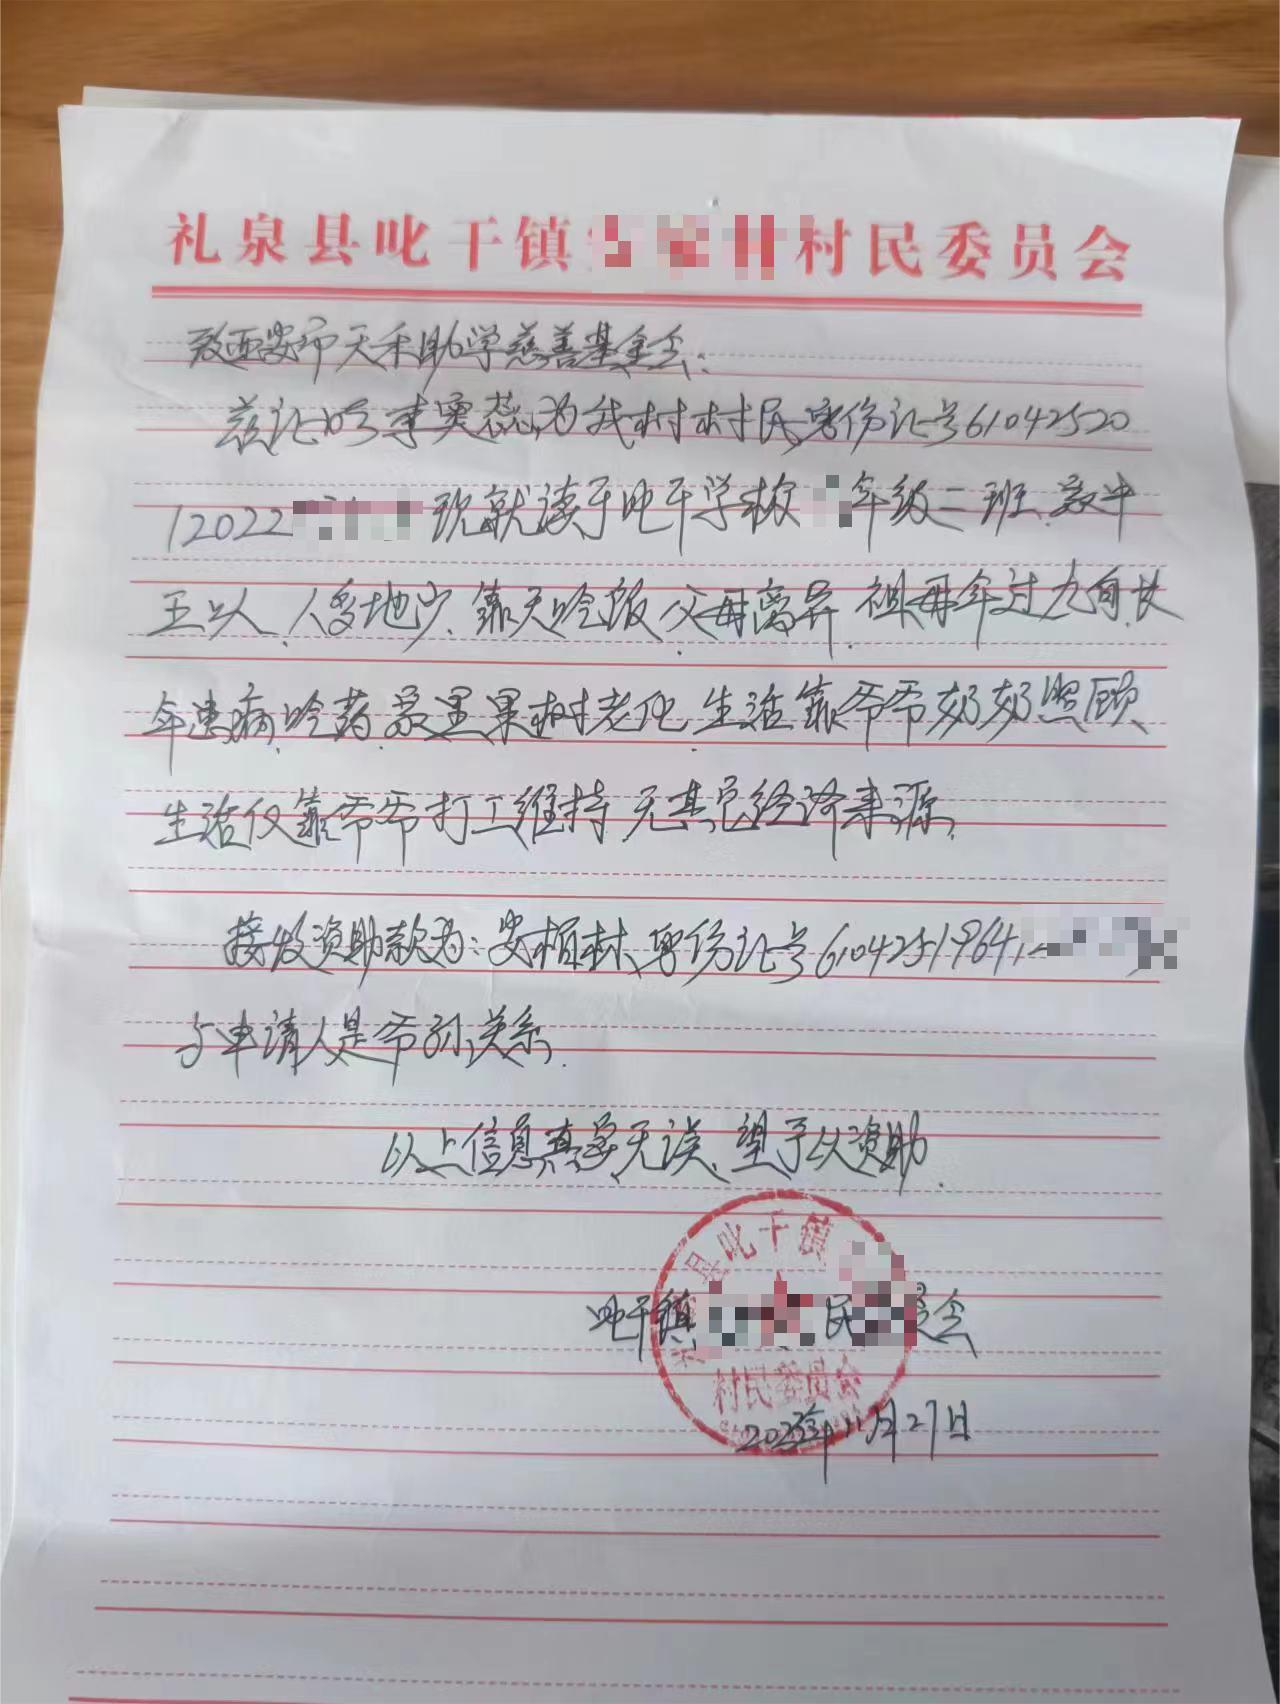 礼泉县叱干镇 村民委员会
致西安市天禾助学慈善基金会:
兹证明李奕蕊,为我村村民,身份证号61042520
12022 现就读于叱干学校 年级二班,家中
五口人,人多地少,靠天吃饭,父母离异,祖母年过九旬,长
年患病,吃药,家里果树老化,生活靠爷爷奶奶照顾
生活仅靠爷爷打工维持,无其它经济来源,
接收资助款为:安柏林,身份证号610425196412
与申请人是爷孙关系,
以上信息真实无误,望予以资助.
县叱干镇
叱干镇 民 员会
村民委员会
11月27日